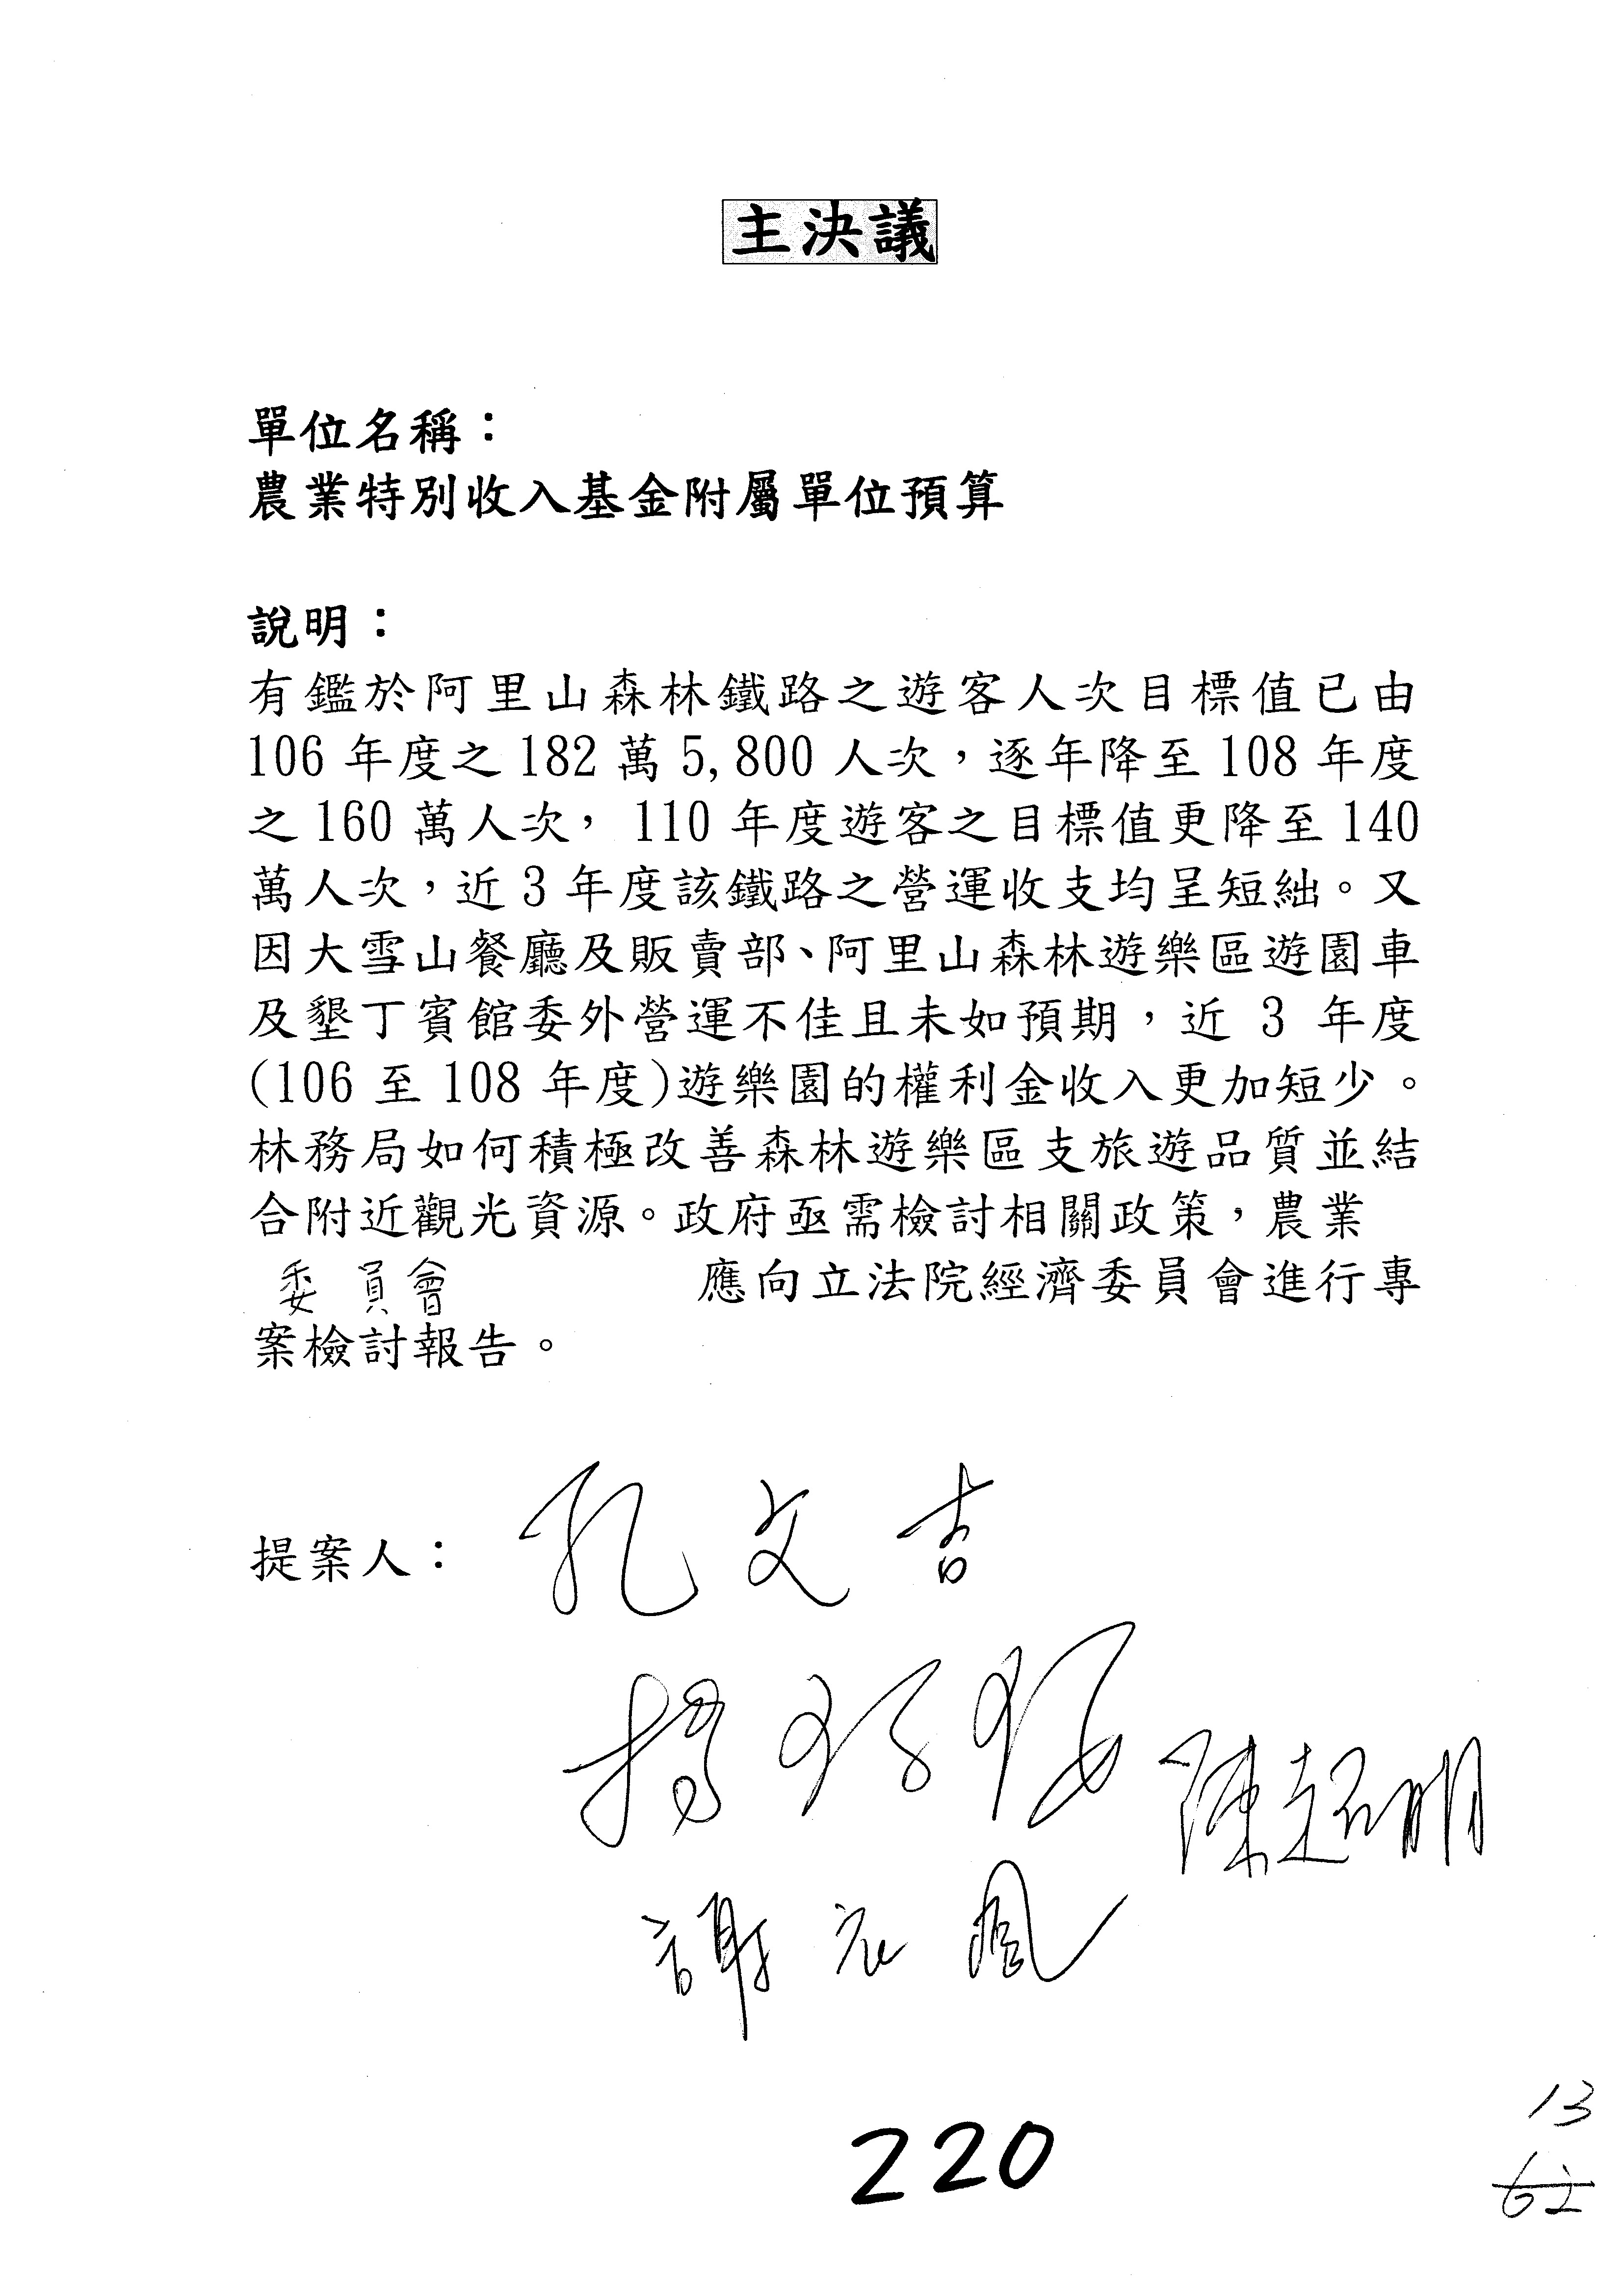 主決議
單位名稱：
農業特別收入基金附屬單位預算
說明：
有鑑於阿里山森林鐵路之遊客人次目標值已由
106 年度之 182 萬 5,800 人次，逐年降至 108 年度
之 160 萬人次， 110 年度遊客之目標值更降至 140
萬人次，近 3 年度該鐵路之營運收支均呈短絀。又
因大雪山餐廳及販賣部、阿里山森林遊樂區遊園車
及墾丁賓館委外營運不佳且未如預期，近 3 年度
(106 至 108 年度)遊樂園的權利金收入更加短少。
林務局如何積極改善森林遊樂區支旅遊品質並結
合附近觀光資源。政府亟需檢討相關政策，農業
委員會 應向立法院經濟委員會進行專
案檢討報告。
提案人： 孔文吉
陳超明
謝衣鳳
220
13
62